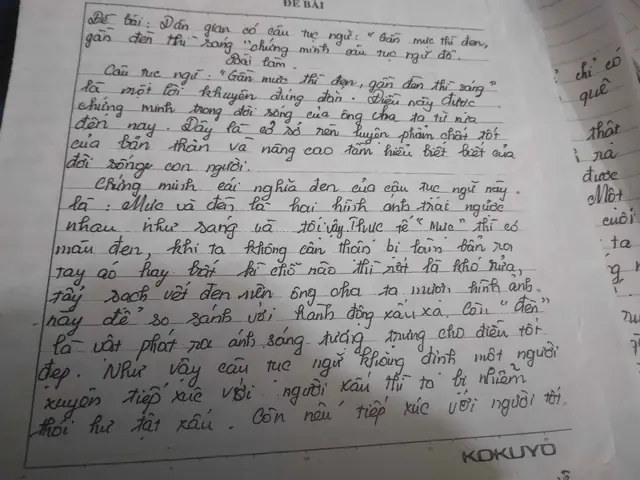 ĐỀ BÀI
Đề bài: Dân gian có câu tục ngữ: "Gần mực thì đen,
gần đèn thì sáng" chứng minh câu tục ngữ đó.
Bài làm.
Câu tục ngữ: "Gần mực thì đen, gần đèn thì sáng"
là một lời khuyên đúng đắn. Điều này được
chứng minh trong đời sống của ông cha ta từ xưa
đến nay. Đây là cơ sở rèn luyện phẩm chất tốt
của bản thân và nâng cao tầm hiểu biết biết của
đời sống con người.
Chứng minh cái nghĩa đen của câu tục ngữ này.
là: Mực và đèn là hai hình ảnh trái ngược
nhau như sáng và tối vậy. Thực tế "mực" thì có
màu đen, khi ta không cẩn thận bị làm bẩn ra
tay áo hay bất kì chỗ nào thì rất là khó rửa,
tẩy sạch vết đen nên ông cha ta mượn hình ảnh.
này để so sánh với hành động xấu xa. Còn "đèn"
là vật phát ra ánh sáng tượng trưng cho điều tốt
đẹp. Như vậy câu tục ngữ khẳng định một người
xuyên tiếp xúc với người xấu thì ta bị nhiễm
thói hư tật xấu. Còn nếu tiếp xúc với người tốt.
KOKUYO
chỉ có
quê
thật
ra
được
Một
cuối
ta